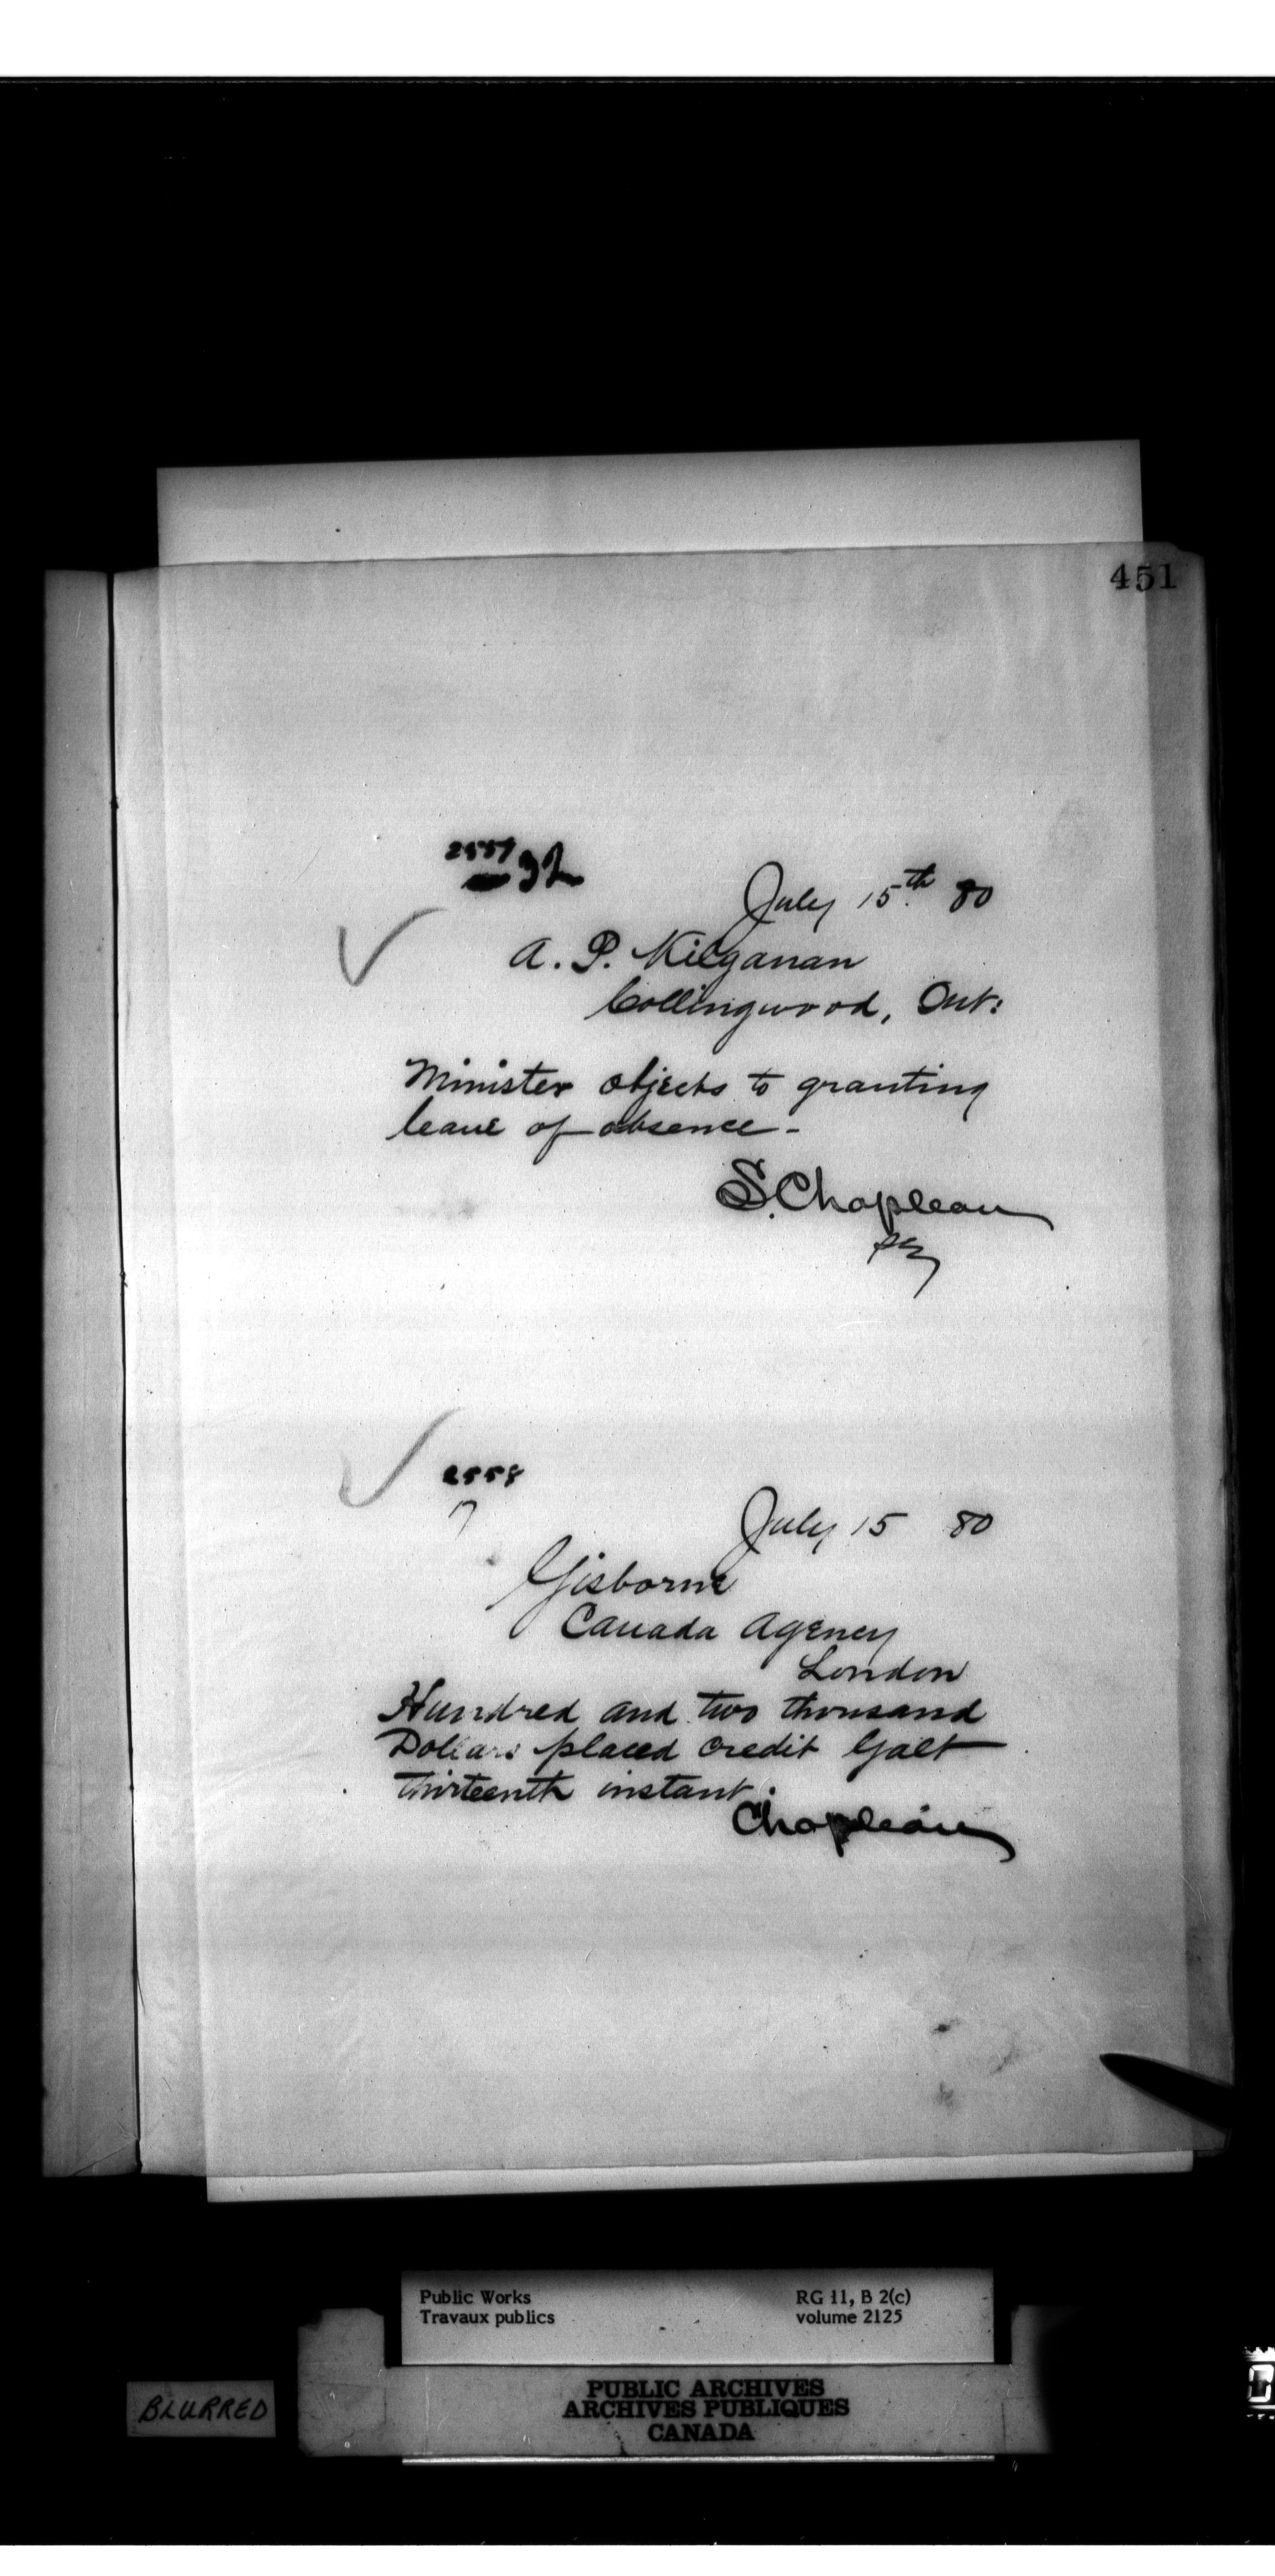 451
2557
July 15th 80
A. P. Kilganan
Collingwood, Ont:
Minister objects to granting
leave of absence -
S. Chapleau
2558
July 15 80
Gisborne
Canada Agency
London
Hundred and two thousand
Dollars placed credit Galt
thirteenth instant.
Chapleau
Public Works
Travaux publics
RG 11, B 2(c)
volume 2125
BLURRED
PUBLIC ARCHIVES
ARCHIVES PUBLIQUES
CANADA